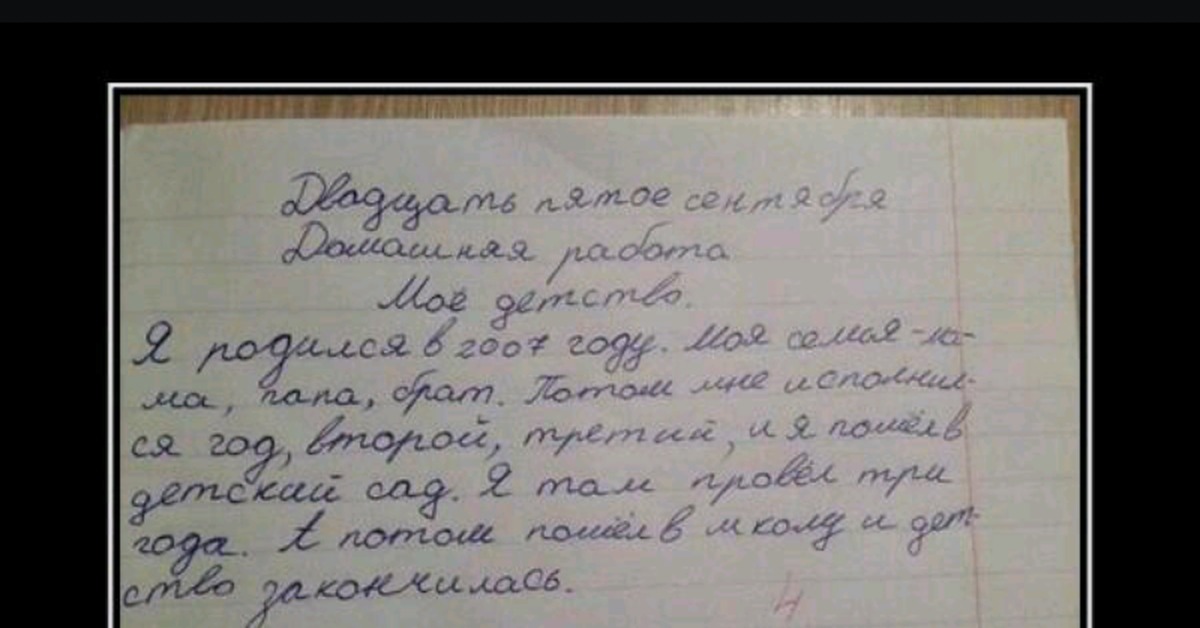 Двадцать пятое сентября
Домашняя работа
Моё детство.
Я родился в 2007 году. Моя семья - ма-
ма, папа, брат. Потом мне исполнил-
ся год, второй, третий, и я пошёл в
детский сад. Я там провёл три
года. А потом пошёл в школу и дет-
ство закончилась.
4